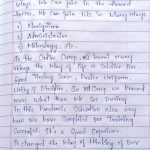 Ways We Can Join in the Armed
Forces We Can Join in Many Ways
1) Navigation
2) Administration
3) Meteorology, Etc.
In the Camp we learnt many
things the Way of life a Soldier For
Good Timing Sense, Proper Uniform,
Unity & Discipline. In the Camp we learned
more what than we See During
in this Pandemic Situation also any
how we have Completed Our Training
Successful. It's a Good Experience.
It changed the Way of thinking of Our